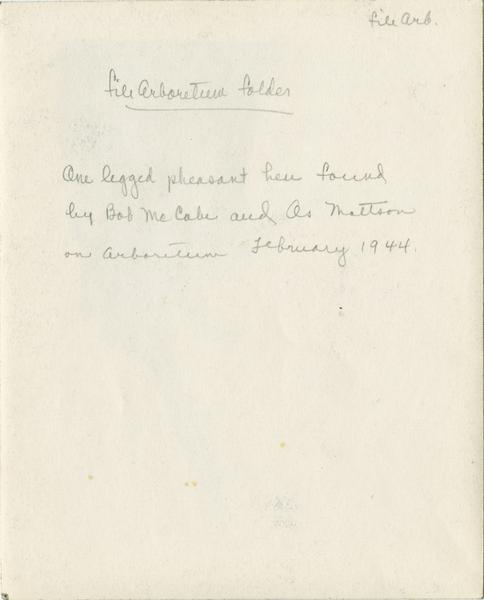 file Arb.
file Arboretum folder
One legged pheasant hen found
by Bob McCabe and Os Mattson
on arboretum February 1944.